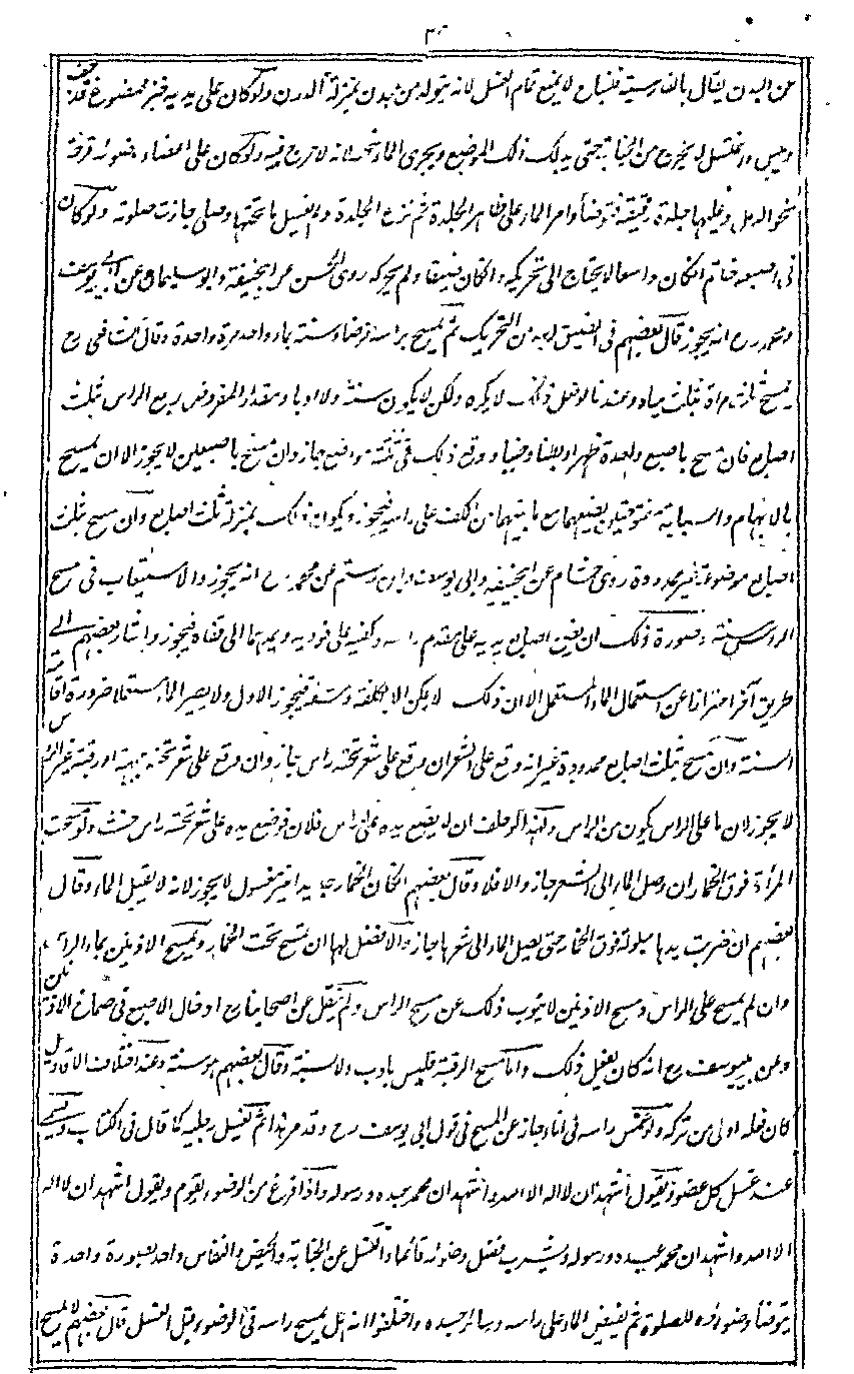 عن البدن يقال بالفارسية لا يمنع تمام الغسل لانه يتولد من بدن بمنزلة الدرن ولو كان على يديه خبز ممضوغ قد جف
ويبس واغتسل لا يخرج من الجنابة حتى يدلك ذلك الموضع ويجرى الماء تحته لانه لا حرج فيه ولو كان على اعضاء وضوئه قرحة
نحو الدمل وعليها جلدة رقيقة فتوضأ وامر الماء على ظاهر الجلدة ثم نزع الجلدة ولم يغسل ما تحتها وصلى جازت صلوته ولو كان
فى اصبعه خاتم ان كان واسعا لا يحتاج الى تحريكه وان كان ضيقا ولم يحركه روى الحسن عن ابيحنيفة وابو سليمان عن ابى يوسف
ومحمد رح انه يجوز قال بعضهم فى الضيق لابد من التحريك ثم يمسح براسه فرضا وسنة بماء واحد مرة واحدة وقال الشافعى رح
يمسح ثلث مرات بثلث مياه وعندنا لو فعل ذلك لا يكره ولكن لا يكون سنة ولا ادبا ومقدار المفروض ربع الراس ثلث
اصابع فان مسح باصبع واحدة ظهرا وبطنا وجنبا ووقع ذلك فى ثلثة مواضع جاز وان مسح باصبعين لا يجوز الا ان يمسح
بالابهام والسبابة مفتوحتين يضعهما مع ما بينهما من الكف على راسه فيجوز ويكون ذلك بمنزلة ثلث اصابع وان مسح بثلث
اصابع موضوعة غير ممدودة روى هشام عن ابيحنيفه وابى يوسف وابن رستم عن محمد رح انه يجوز والاستيعاب فى مسح
الراس سنة وصورة ذلك ان يضع اصابع يديه على مقدم راسه وكفيه على فوديه ويمدهما الى قفاه فيجوز واشار بعضهم الى
طريق آخر احترازا عن استعمال الماء المستعمل الا ان ذلك لا يمكن الا بكلفة ومشقة فيجوز الاول ولا يصير الماء مستعملا ضرورة اقامة
السنة وان مسح بثلث اصابع ممدودة غير انه وقع على الشعر ان وقع على شعر تحته راس جاز وان وقع على شعر تحته جبهة او رقبة غير الراس
لا يجوز لان ما على الراس يكون من الراس ولهذا لو حلف ان لا يضع يده على راس فلان فوضع يده على شعر تحته راس حنث ولو مسحت
المرأة فوق الخمار ان وصل الماء الى الشعر جاز والا فلا وقال بعضهم ان كان الخمار جديدا غير مغسول لا يجوز لانه لا يقبل الماء وقال
بعضهم ان ضربت يدها مبلولة فوق الخمار حتى يصل الماء الى شعرها جاز والافضل لها ان تمسح تحت الخمار ويمسح الاذنين بماء الراس
وان لم يمسح على الراس ومسح الاذنين لا ينوب ذلك عن مسح الراس ولم ينقل عن اصحابنا رح ادخال الاصبع فى صماخ الاذنين
وعن ابى يوسف رح انه كان يفعل ذلك واما مسح الرقبة فليس بادب ولا سنة وقال بعضهم هو سنة وعند اختلاف الاقاويل
كان فعله اولى من تركه ولو غمس راسه فى اناء جاز عن المسح فى قول ابى يوسف رح وقد مر هذا ثم يغسل رجليه كما قال فى الكتاب ويسمى
عند غسل كل عضو ويقول اشهد ان لا اله الا الله واشهد ان محمدا عبده ورسوله واذا فرغ من الوضوء يقوم ويقول اشهد ان لا اله
الا الله واشهد ان محمدا عبده ورسوله ويشرب فضل وضوئه قائما والغسل عن الجنابة والحيض والنفاس واحد بصورة واحدة
يتوضأ وضوءه للصلوة ثم يفيض الماء على راسه وسائر جسده واختلفوا انه هل يمسح راسه فى الوضوء قبل الغسل قال بعضهم لا يمسح